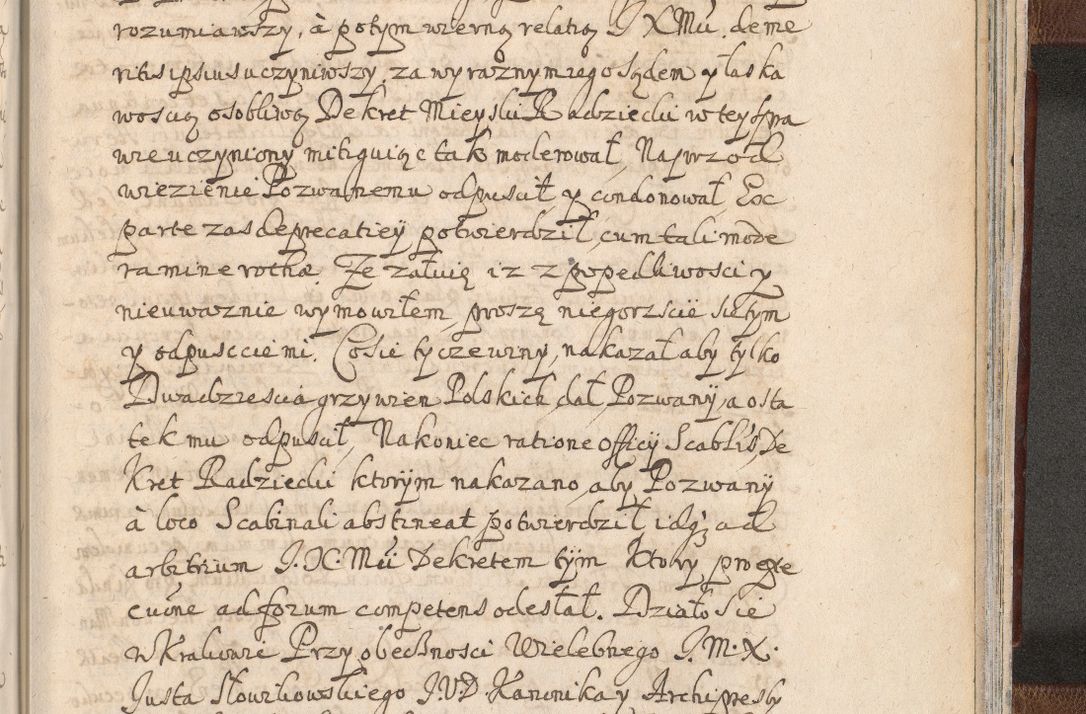 rozumiawszy, à potym wierną relatią J X Mú. de me
ritis ipsius uczyniwszy, za wyraznym iego Sądem y łaska
woscią osobliwą Dekret Mieyski Radziecki w tey spra
wie uczyniony mitiguiąc tak moderował, Naprzod
wiezienie Pozwanemu odpuscił y condonował, Exc
parte zas deprecatiey potwierdził, cum tali mode
ramine rothæ Ze załuię iz z popedliwosci y
nieuwaznie wymowiłem, proszę niegorzscie sie tym
y odpuscciemi. Co sie tycze winy, nakazał aby tylko
Dwadziescia grzywien Polskich dał Pozwany, a osta
tek mu odpuscił, Nakoniec ratione officÿ Scablis De
kret Radziecki ktorym nakazano aby Pozwany
à loco Scabinali abstineat potwierdził idq3 ad
arbitrium J. X. Mú Dekretem tÿm ktory pro exe
cuõne ad forum competens odesłał. Działo Sie
w Krakowie Przy obecznosci Wielebnego J. M. X.
Justa Słowikowskiego J. V. D. Kanonika y Archipresby